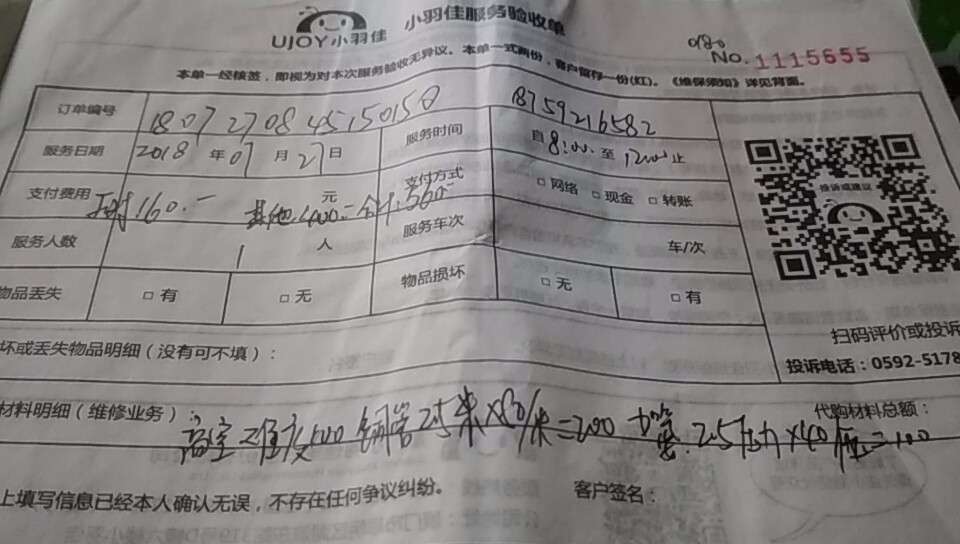 UJOY小羽佳 小羽佳服务验收单
No. 1115655
本单一经核签，即视为对本次服务验收无异议。本单一式两份，客户留存一份(红)。《维保须知》详见背面。
订单编号 1807270845150150 18759216582
服务日期 2018 年 07 月 27 日 服务时间 自 8:00 至 12:00 止
支付费用 160.- 其他400.- 合计:560 元 支付方式 □ 网络 □ 现金 □ 转账
服务人数 1 人 服务车次 车/次
物品丢失 □ 有 □ 无 物品损坏 □ 无 □ 有
投诉或建议
扫码评价或投诉
坏或丢失物品明细（没有可不填）：
投诉电话：0592-5178
材料明细（维修业务）： 高空 难度100 铜管2.5米×80/米=200 加氟 2.5压力×40/压=100
代购材料总额：
上填写信息已经本人确认无误，不存在任何争议纠纷。 客户签名：